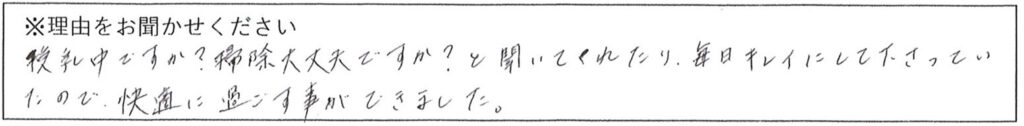 ※理由をお聞かせください
授乳中ですか?掃除大丈夫ですか?と聞いてくれたり、毎日キレイにして下さってい
たので、快適に過ごす事ができました。